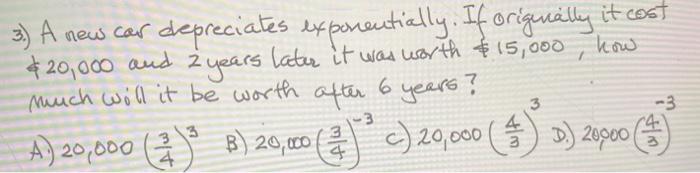 3.) A new car depreciates exponentially. If originally it cost
$20,000 and 2 years later it was worth $15,000, how
much will it be worth after 6 years?
A.) 20,000 (3/4)^3 B.) 20,000 (3/4)^-3 C.) 20,000 (4/3)^3 D.) 20,000 (4/3)^-3